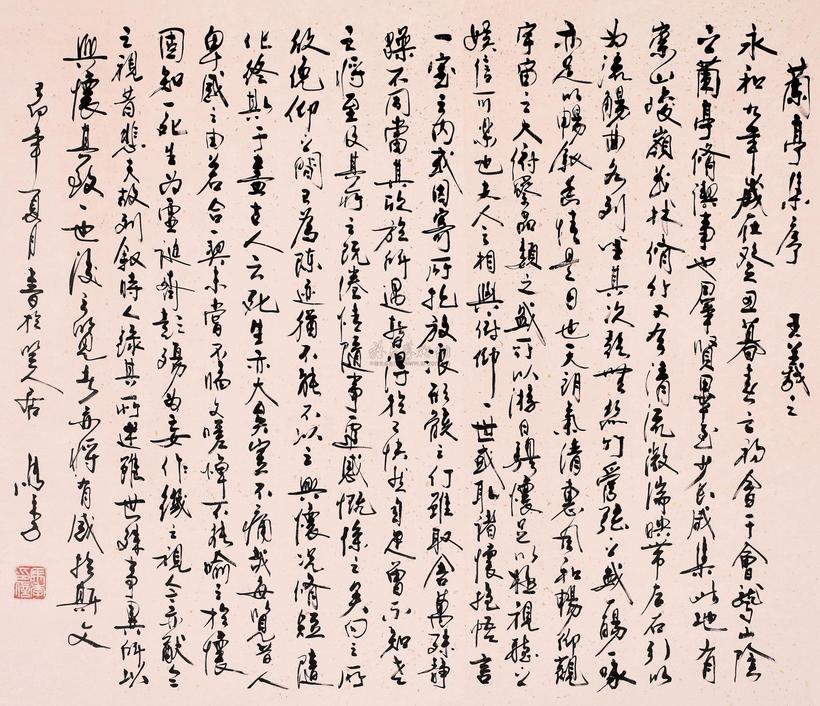 蘭亭集序　王羲之
永和九年歲在癸丑暮春之初會于會稽山陰
之蘭亭脩禊事也羣賢畢至少長咸集此地有
崇山峻嶺茂林脩竹又有清流激湍映帶左右引以
為流觴曲水列坐其次雖無絲竹管弦之盛一觴一詠
亦足以暢敘幽情是日也天朗氣清惠風和暢仰觀
宇宙之大俯察品類之盛所以遊目騁懷足以極視聽之
娛信可樂也夫人之相與俯仰一世或取諸懷抱悟言
一室之內或因寄所託放浪形骸之外雖取舍萬殊靜
躁不同當其欣於所遇暫得於己快然自足曾不知老
之將至及其所之既倦情隨事遷感慨係之矣向之所
欣俛仰之間已為陳迹猶不能不以之興懷況脩短隨
化終期于盡古人云死生亦大矣豈不痛哉每覽昔人
興感之由若合一契未嘗不臨文嗟悼不能喻之於懷
固知一死生為虛誕齊彭殤為妄作後之視今亦猶今
之視昔悲夫故列敘時人錄其所述雖世殊事異所以
興懷其致一也後之覽者亦將有感於斯文
年夏月書於人居